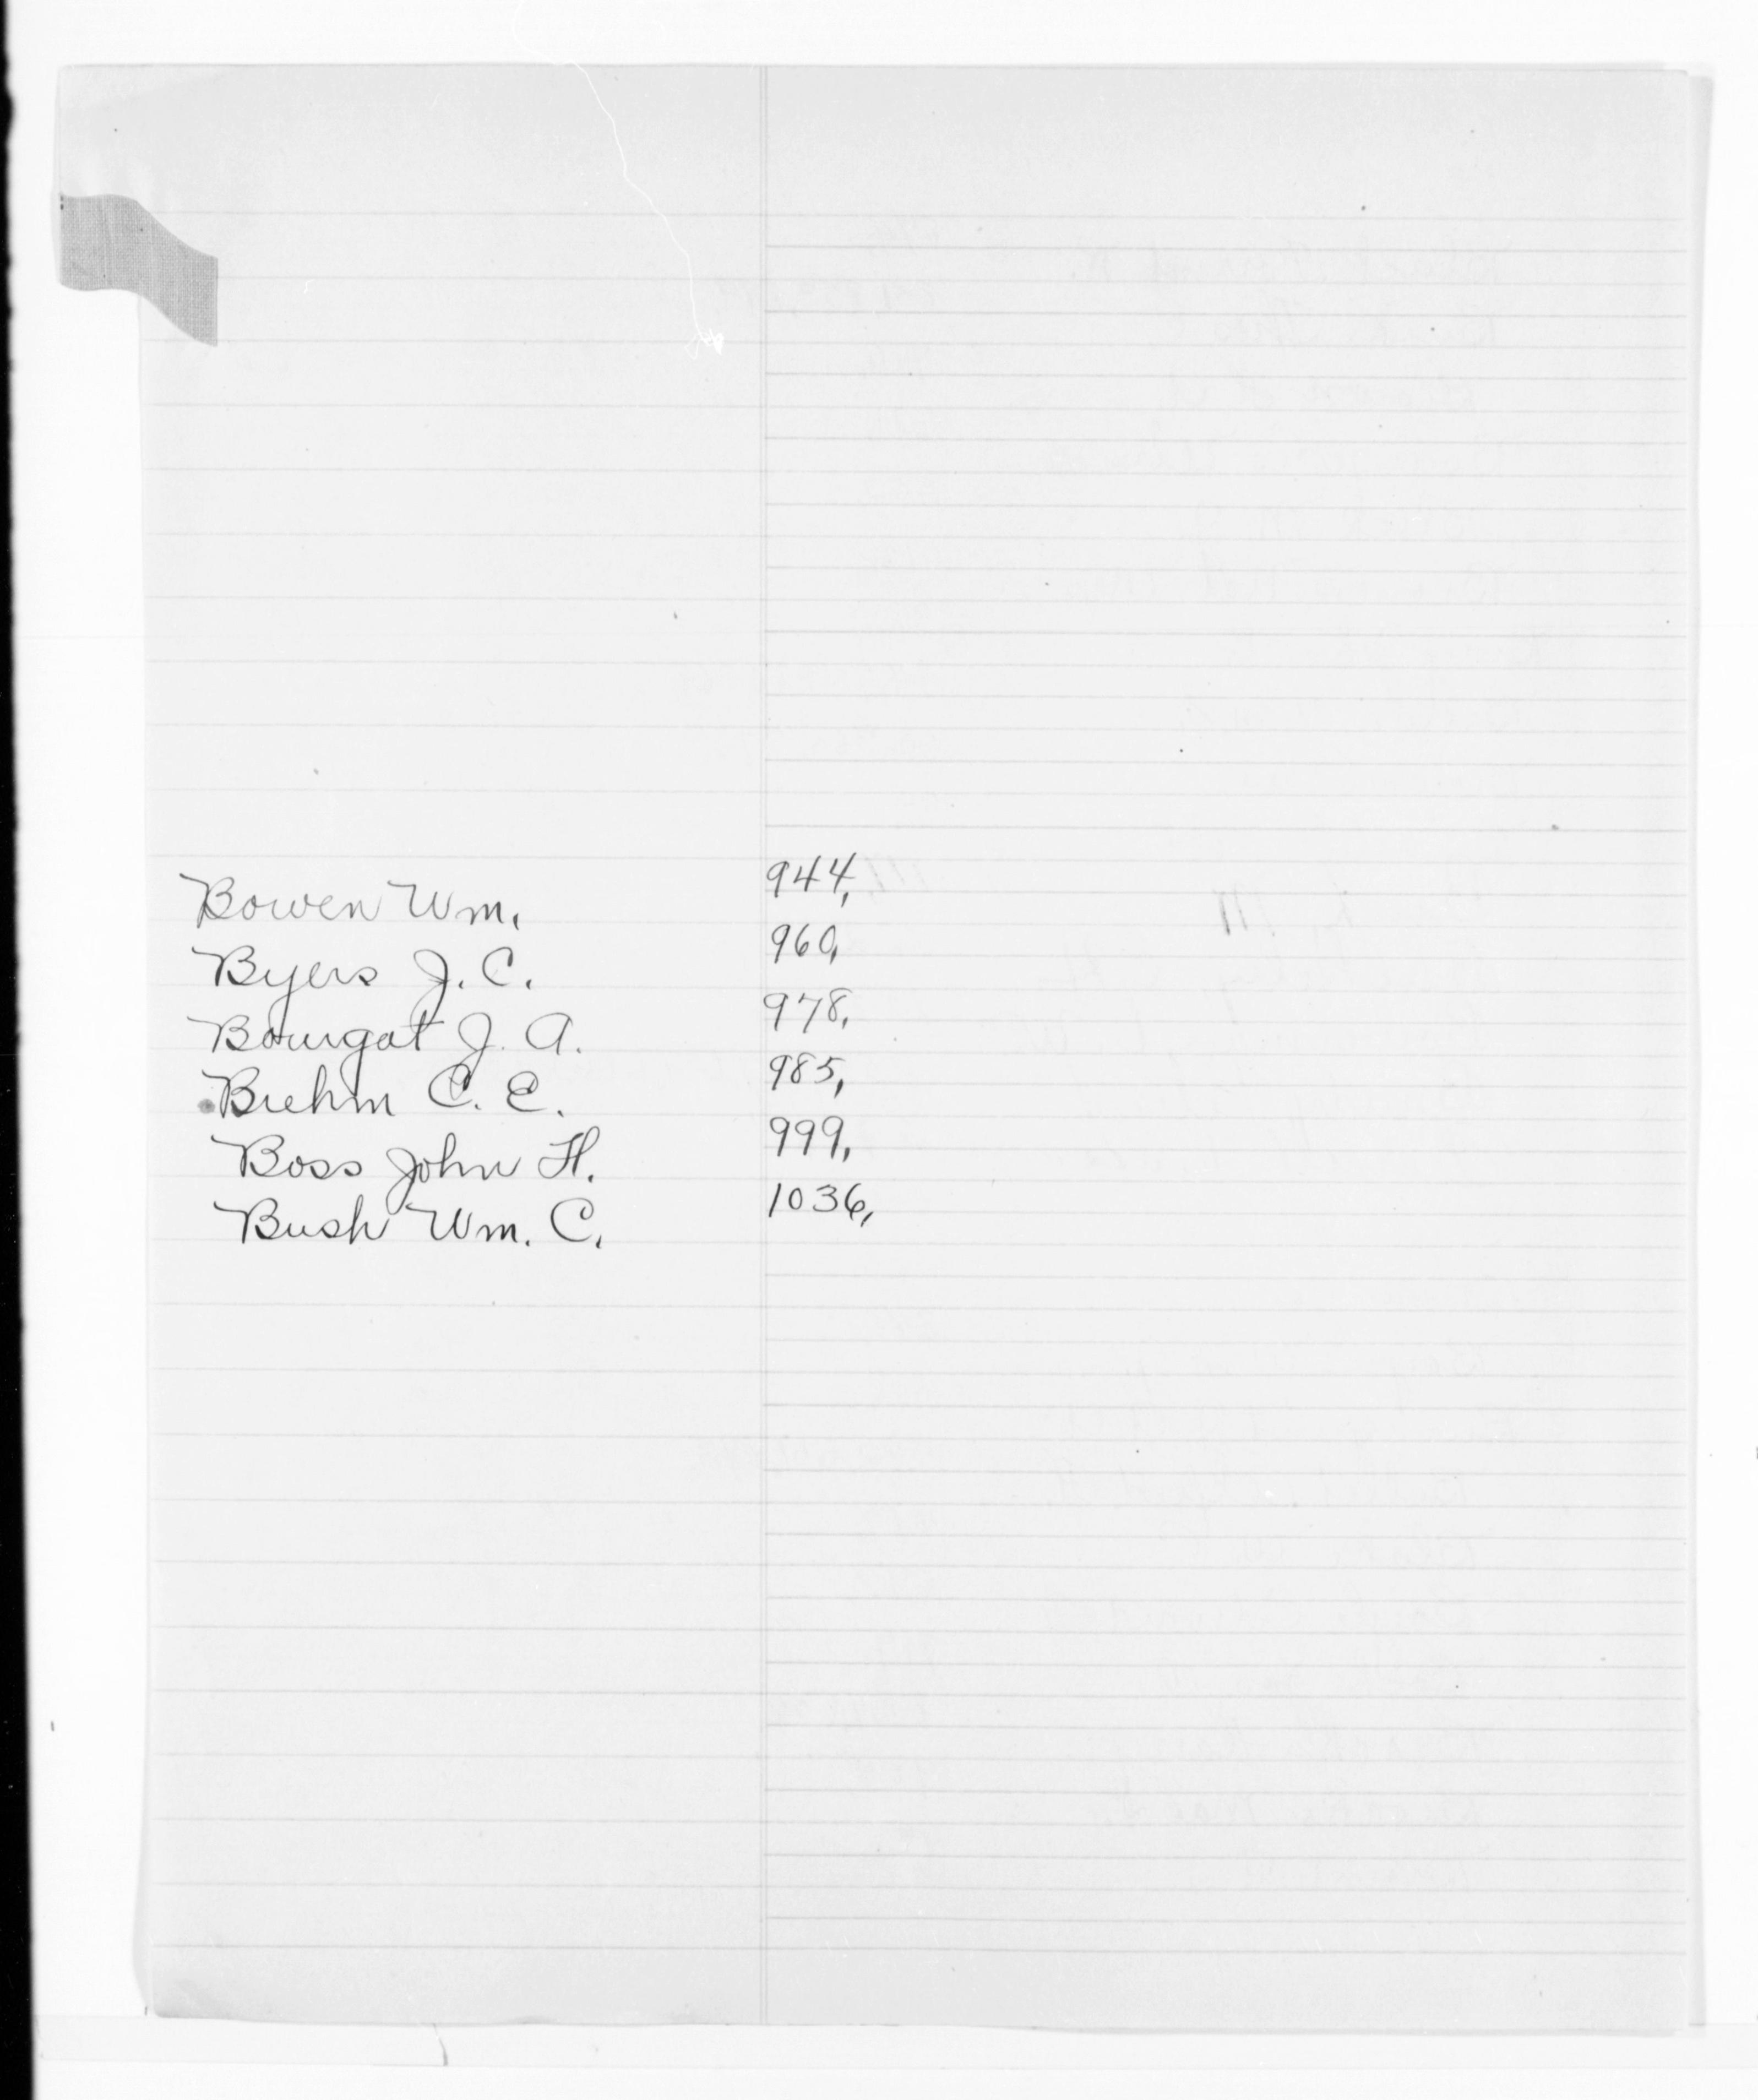 Bowen Wm. 944,
Byers J. C. 960,
Bourgat J. A. 978,
Buehm C. E. 985,
Boss John H. 999,
Bush Wm. C. 1036,